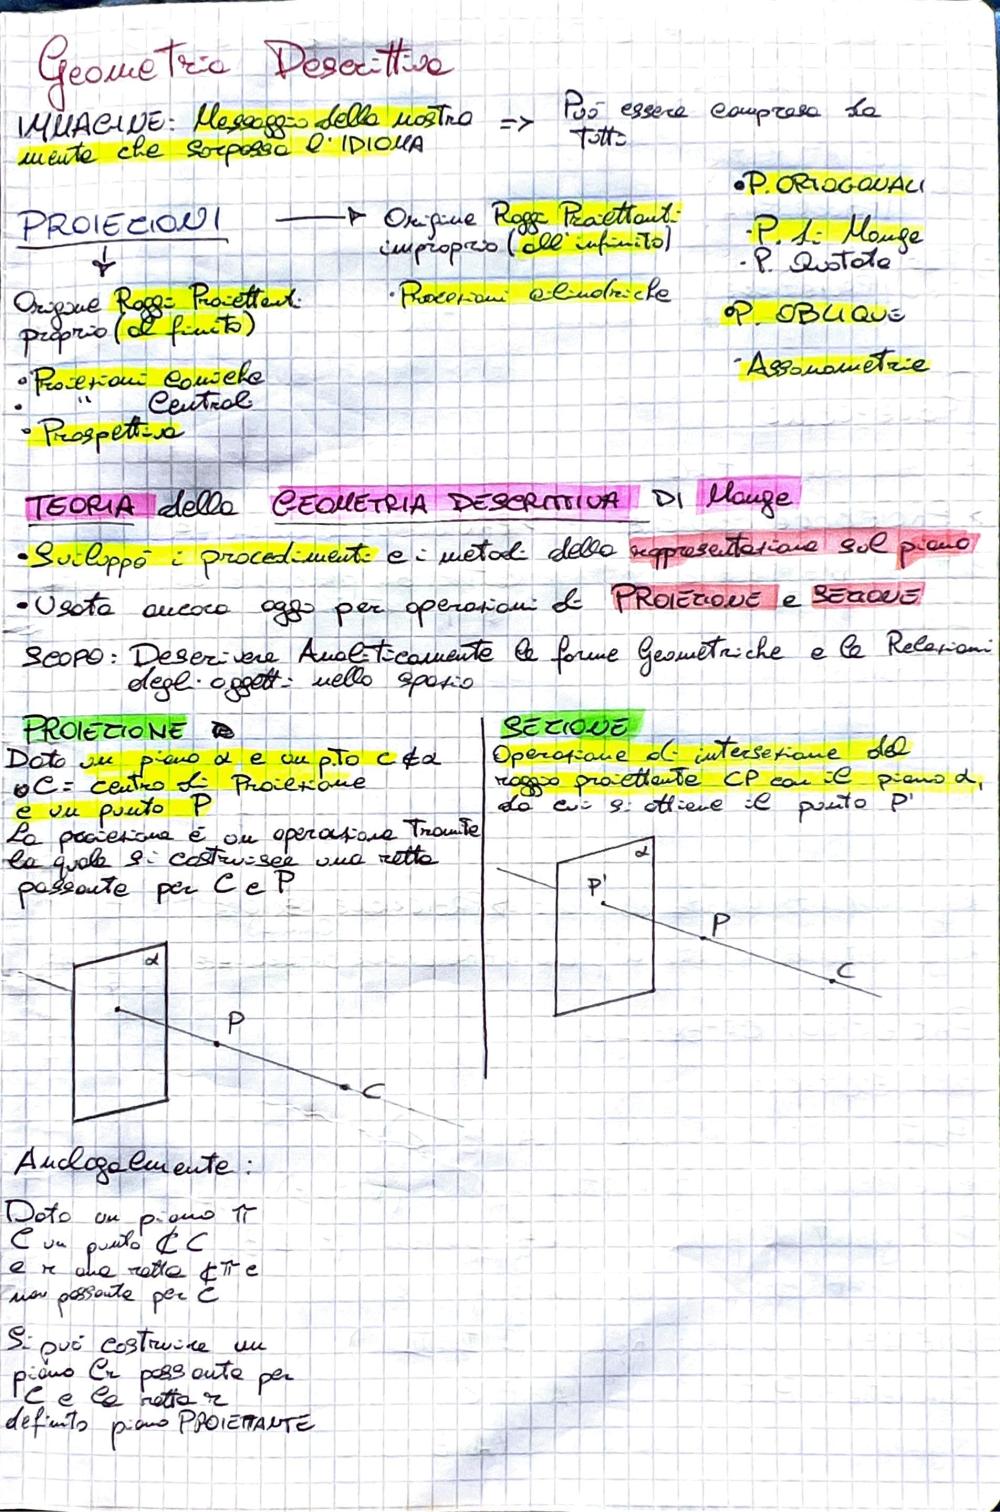 Geometria Descrittiva
IMMAGINE: Messaggio della nostra
mente che sorpassa l'IDIOMA
=> Può essere compresa da
tutti
PROIEZIONI
Origine Raggi Proiettanti
proprio (al finito)
• Proiezioni coniche
• " Centrali
• Prospettiva
Origine Raggi Proiettanti
improprio (all'infinito)
• Proiezioni cilindriche
• P. ORTOGONALI
- P. di Monge
- P. Quotate
• P. OBLIQUE
- Assonometrie
TEORIA della GEOMETRIA DESCRITTIVA DI Monge
• Sviluppò i procedimenti e i metodi della rappresentazione sul piano
• Usata ancora oggi per operazioni di PROIEZIONE e SEZIONE
SCOPO: Descrivere Analiticamente le forme Geometriche e le Relazioni
degli oggetti nello spazio
PROIEZIONE
Dato un piano α e un p.to C ∉ α
C = centro di Proiezione
e un punto P
La proiezione è un operazione Tramite
la quale si costruisce una retta
passante per C e P
α
P
C
Analogalmente:
Dato un piano π
C un punto ⊄ C
e r una retta ⊄ π e
non passante per C
Si può costruire un
piano Cr passante per
C e la retta r
definito piano PROIETTANTE
SEZIONE
Operazione di intersezione del
raggio proiettante CP con il piano α,
da cui si ottiene il punto P'
α
P'
P
C